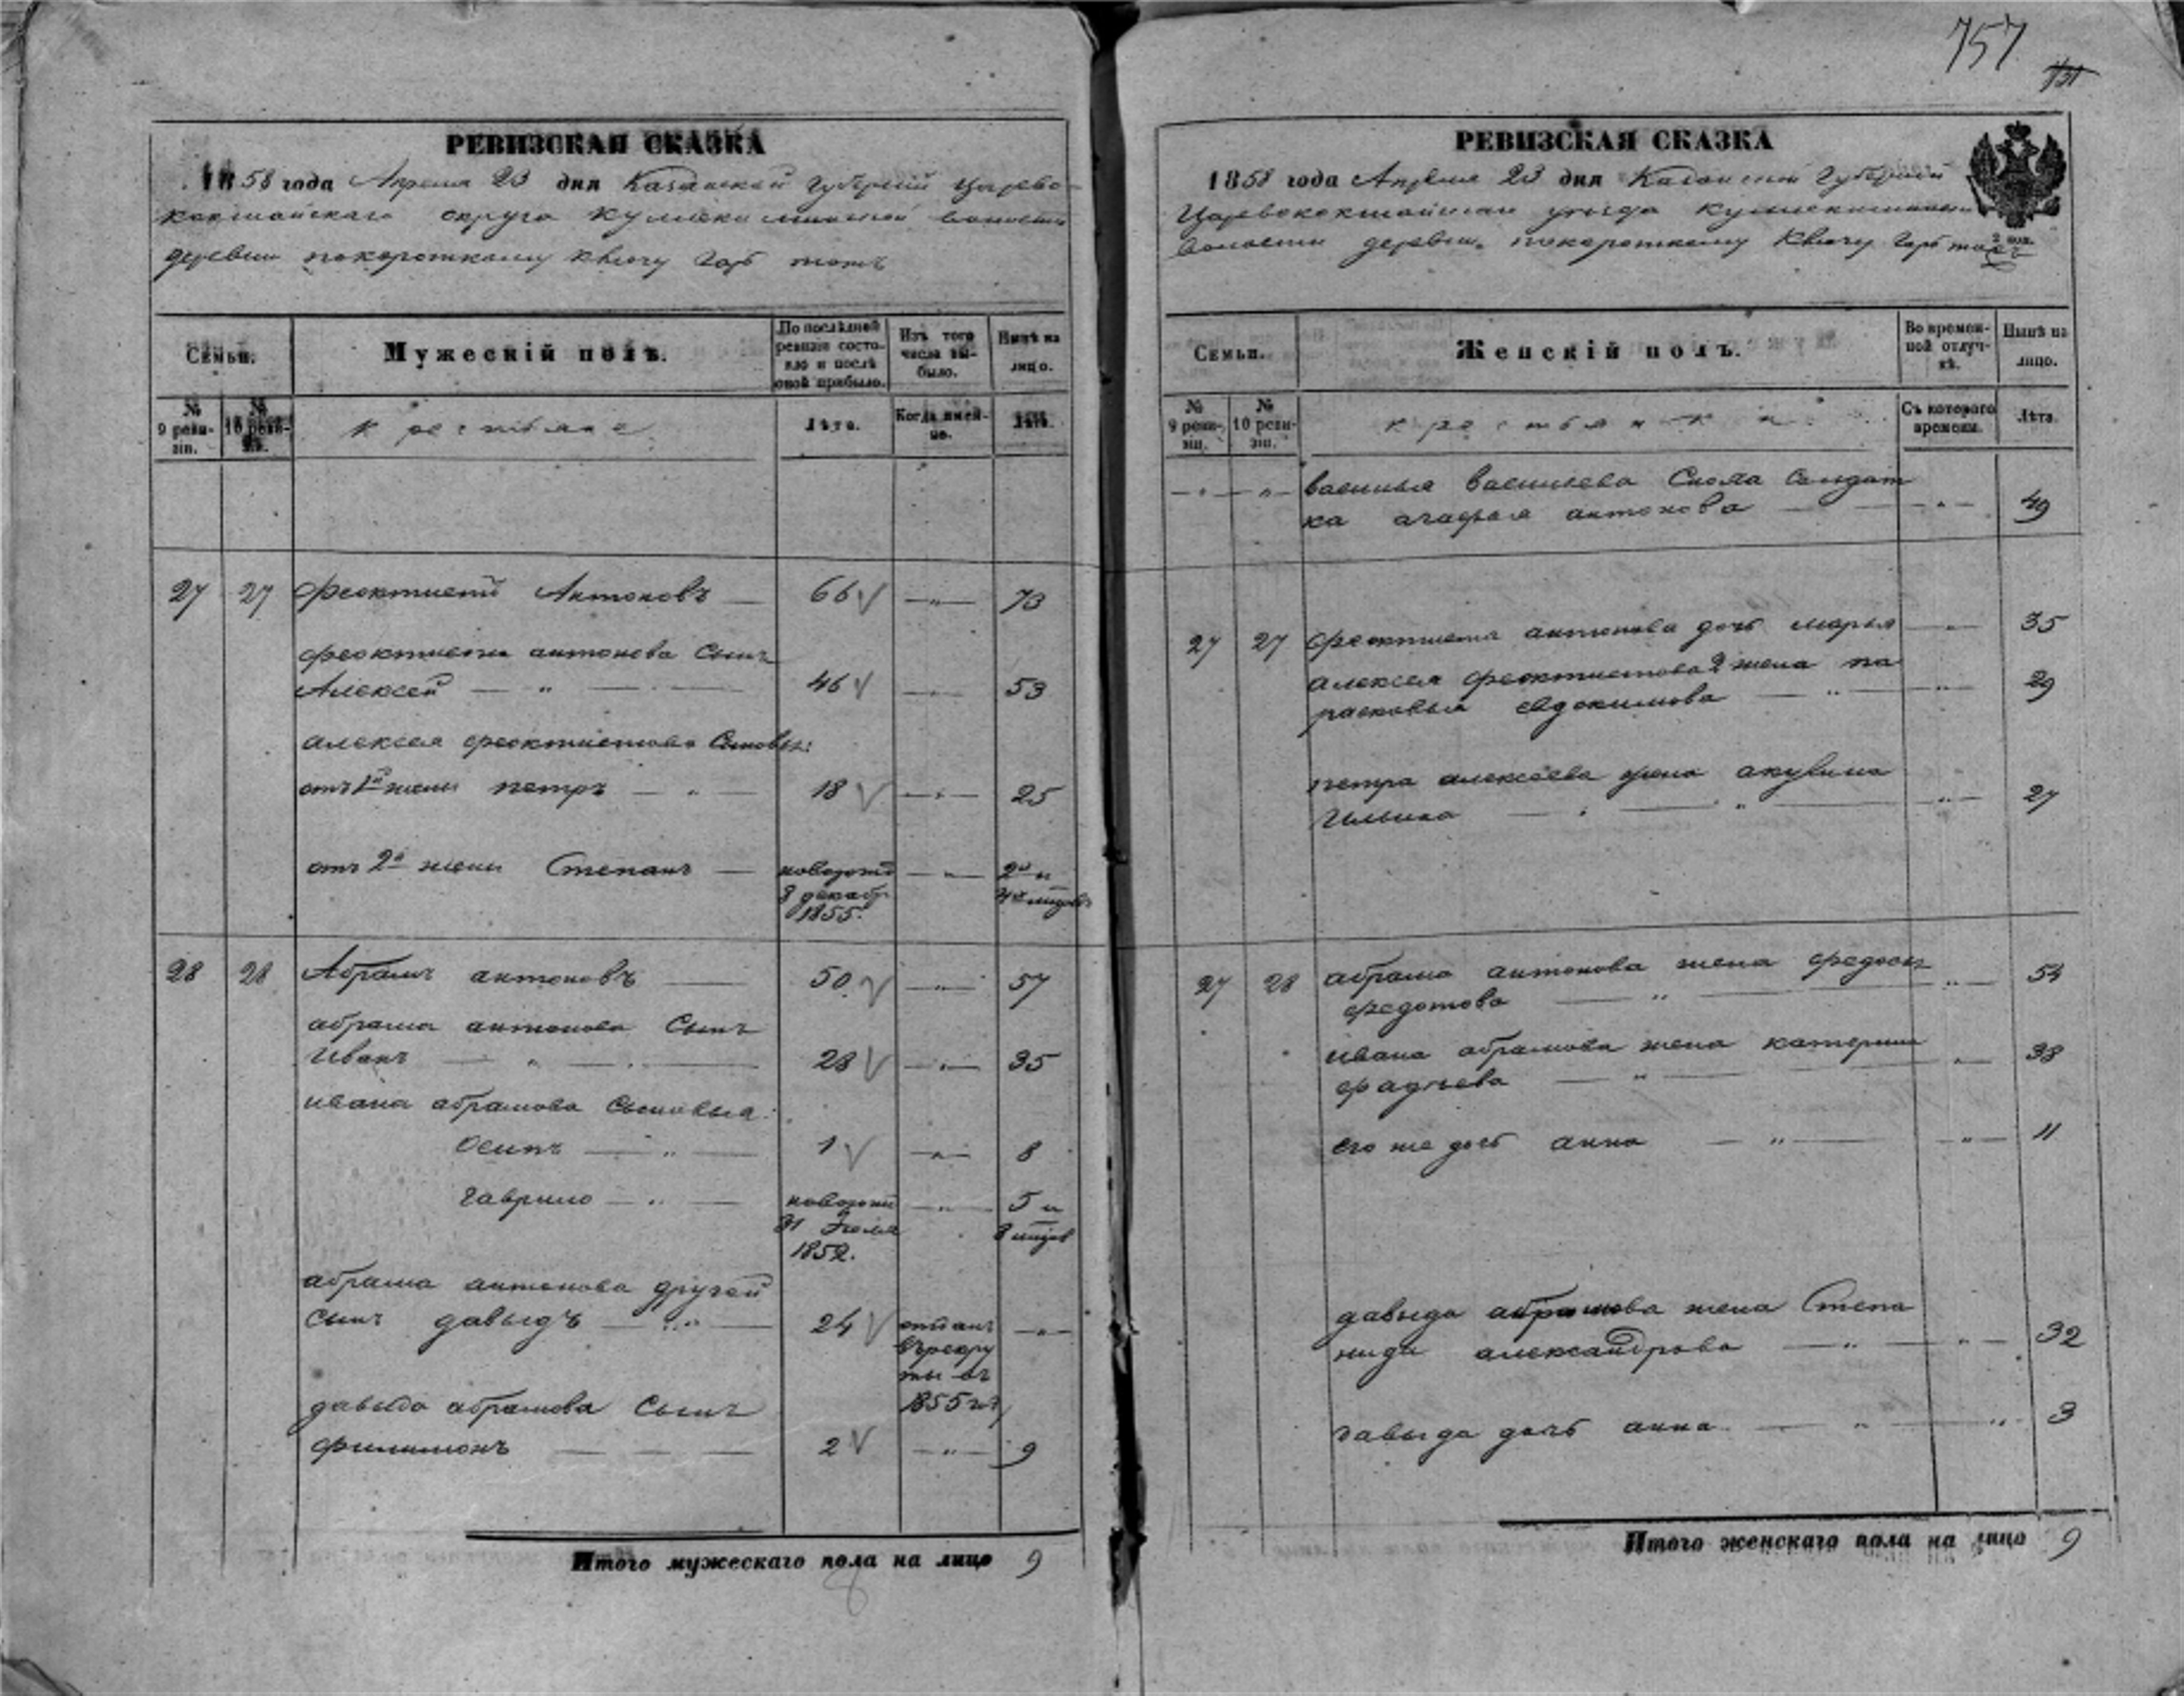 757
РЕВИЗСКАЯ СКАЗКА
1858 года Апреля 23 дня Казанской Губерніи Царево-
кокшайскаго округа волости
деревни покороткому Ключу тожъ
Семьи.
Мужескій полъ.
По послѣдней ревизіи состояло и послѣ оной прибыло.
Изъ того числа выбыло.
Нынѣ на лицо.
№ 9 ревизіи.
№ 10 ревизіи.
крестьяне
Лѣта.
Когда именно.
Лѣта.
27 27 Феоктистъ Антоновъ — 66 — „ — 73
феоктиста антонова Сынъ
Алексей — „ — 46 — „ — 53
алексея феоктистова Сыновья:
отъ 1й жены петръ — „ — 18 — „ — 25
отъ 2й жены Степанъ — новорожд — „ — 2 и
8 декабр 4 месцовъ
1855.
28 28 Абрамъ антоновъ — 50 — „ — 57
абрама антонова Сынъ
Иванъ — „ — 28 — „ — 35
ивана абрамова Сыновья:
Осипъ — „ — 1 — „ — 8
гаврило — „ — новорожд — „ — 5 и
31 Іюля 8 месцов
1852.
абрама антонова другой
Сынъ давыдъ — „ — 24 отданъ — „ —
въ рекру
ты въ
1855 г.
давыда абрамова Сынъ
филимонъ — 2 — „ — 9
Итого мужескаго пола на лицо 9
РЕВИЗСКАЯ СКАЗКА
1858 года Апреля 23 дня Казанской Губерніи
Царевококшайскаго уезда
волости деревни покороткому Ключу тожъ
2 пол.
Семьи.
Женскій полъ.
Во временной отлучкѣ.
Нынѣ на лицо.
№ 9 ревизіи.
№ 10 ревизіи.
крестьянки
Съ котораго времени.
Лѣта.
— „ — „ — василья васильева Сноха Солдат
ка агафья антонова — „ — 49
27 27 феоктиста антонова дочь марья — „ — 35
алексея феоктистова 2 жена па
расковья евдокимова — „ — „ — 29
петра алексеева жена акулина
Ильина — „ — „ — 27
27 28 абрама антонова жена федосья
федотова — „ — „ — 54
ивана абрамова жена катерина
фадеева — „ — „ — 38
его же дочь анна — „ — „ — 11
давыда абрамова жена Степа
нида александрова — „ — „ — 32
давыда дочь анна — „ — „ 3
Итого женскаго пола на лицо 9